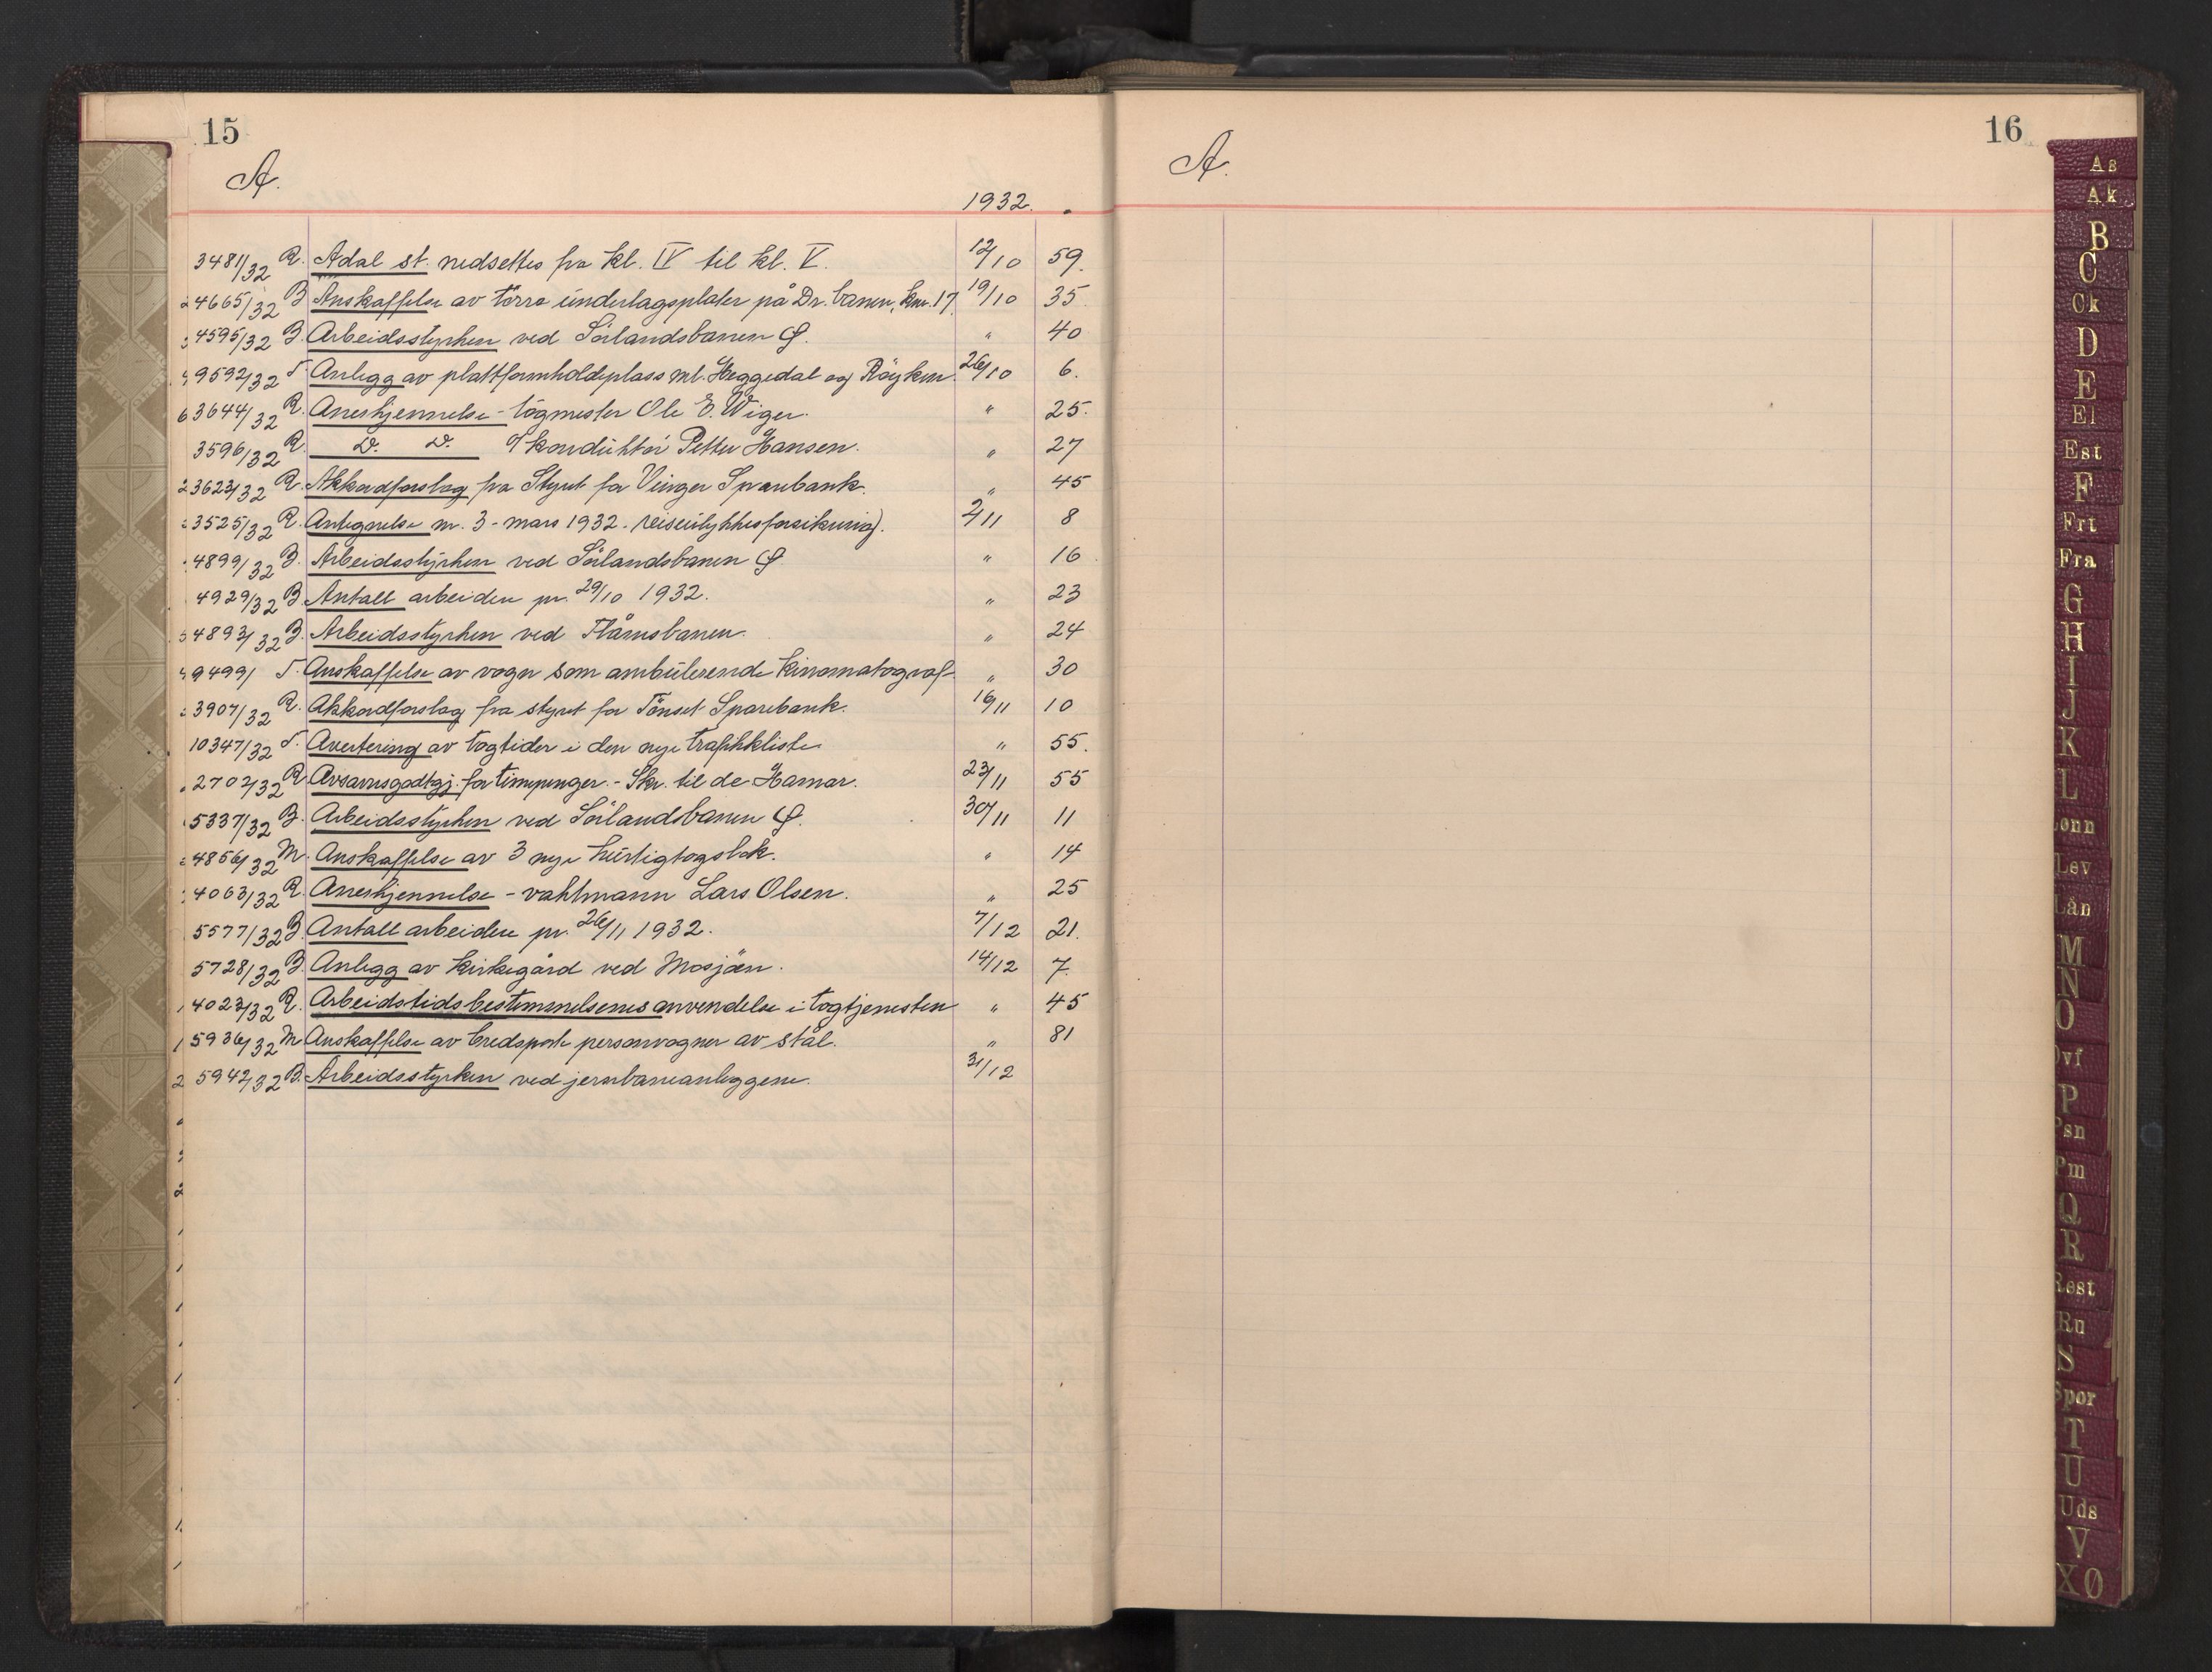 15
A.
1932.
3481/32 R. Ådal st. nedsettes fra kl. IV til kl. V. 12/10 59.
4665/32 B Anskaffelse av større underlagsplater på Dr. banen, km. 17. 19/10 35
4595/32 B. Arbeidsstyrken ved Sörlandsbanen Ø. " 40
9592/32 T. Anlegg av plattformholdeplass ml. Heggedal og Röyken. 26/10 6.
3644/32 R. Aneskjennelse - togmester Ole E. Wiger. " 25.
3596/32 R. D. D. o/ konduktör Petter Hansen. " 27
3623/32 R. Akkordforslag fra Styret for Vinger Sparebank. " 45
3525/32 R. Antegnelse nr. 3 - mars 1932 - reiseulykkesforsikring). 2/11 8
4899/32 B. Arbeidsstyrken ved Sörlandsbanen Ø. " 16
4929/32 B. Antall arbeidere pr. 29/10 1932. " 23
4893/32 B. Arbeidsstyrken ved Flåmsbanen. " 24
9499/ T. Anskaffelse av vogn som ambulerende kinomatograf. " 30
3907/32 R. Akkordforslag fra styret for Tönset Sparebank. 16/11 10
10347/32 T. Avertering av togtider i den nye trafikkliste " 55.
2702/32 R Avsavnsgodtgj. for timepenger. - Skr. til dc Hamar. 23/11 55
5337/32 B. Arbeidsstyrken ved Sörlandsbanen Ø. 30/11 11
4856/32 M. Anskaffelse av 3 nye hurtigtogslok. " 14
4063/32 R. Aneskjennelse - vaktmann Lars Olsen. " 25
5577/32 B. Antall arbeidere pr. 26/11 1932. 7/12 21.
5728/32 B. Anlegg av kirkegård ved Mosjöen. 14/12 7.
4023/32 R. Arbeidstidsbestemmelsenes anvendelse i togtjenesten " 45
5936/32 M Anskaffelse av bredsporte personvogner av stål. " 81
5942/32 B. Arbeidsstyrken ved jernbaneanleggene. 31/12
16
A.
As
Ak
B
C
Ck
D
E
El
Est
F
Frt
Fra
G
H
I
J
K
L
Lønn
Lev
Lån
M
N
O
Ovf
P
Psn
Pm
Q
R
Rest
Ru
S
Spor
T
U
Uds
V
XØ